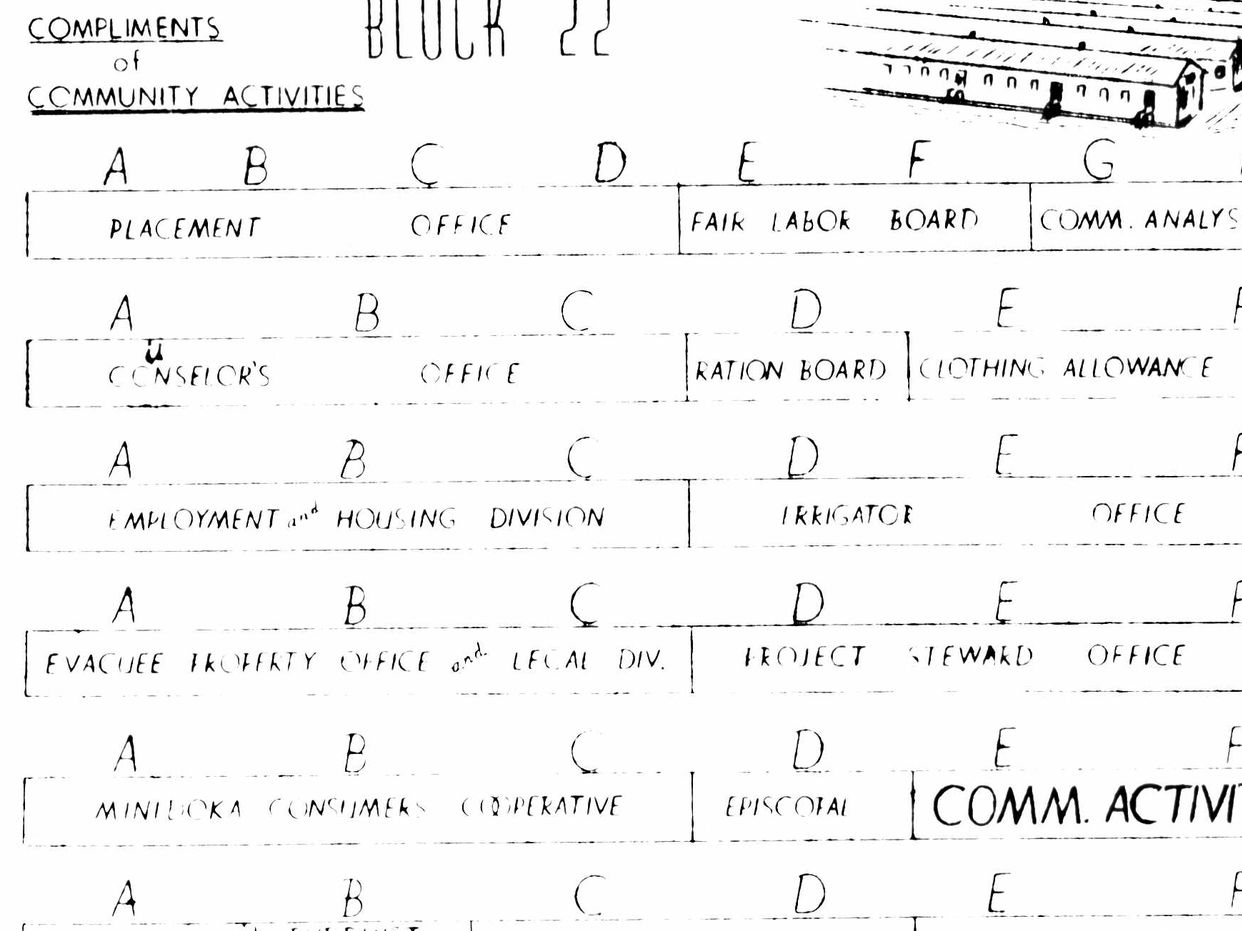 COMPLIMENTS
of
COMMUNITY ACTIVITIES
BLOCK 22
A B C D E F G
PLACEMENT OFFICE FAIR LABOR BOARD COMM. ANALYS
A B C D E F
COUNSELOR'S OFFICE RATION BOARD CLOTHING ALLOWANCE
A B C D E F
EMPLOYMENT and HOUSING DIVISION IRRIGATOR OFFICE
A B C D E F
EVACUEE PROPERTY OFFICE and LEGAL DIV. PROJECT STEWARD OFFICE
A B C D E F
MINIDOKA CONSUMERS COOPERATIVE EPISCOPAL COMM. ACTIVI
A B C D E F